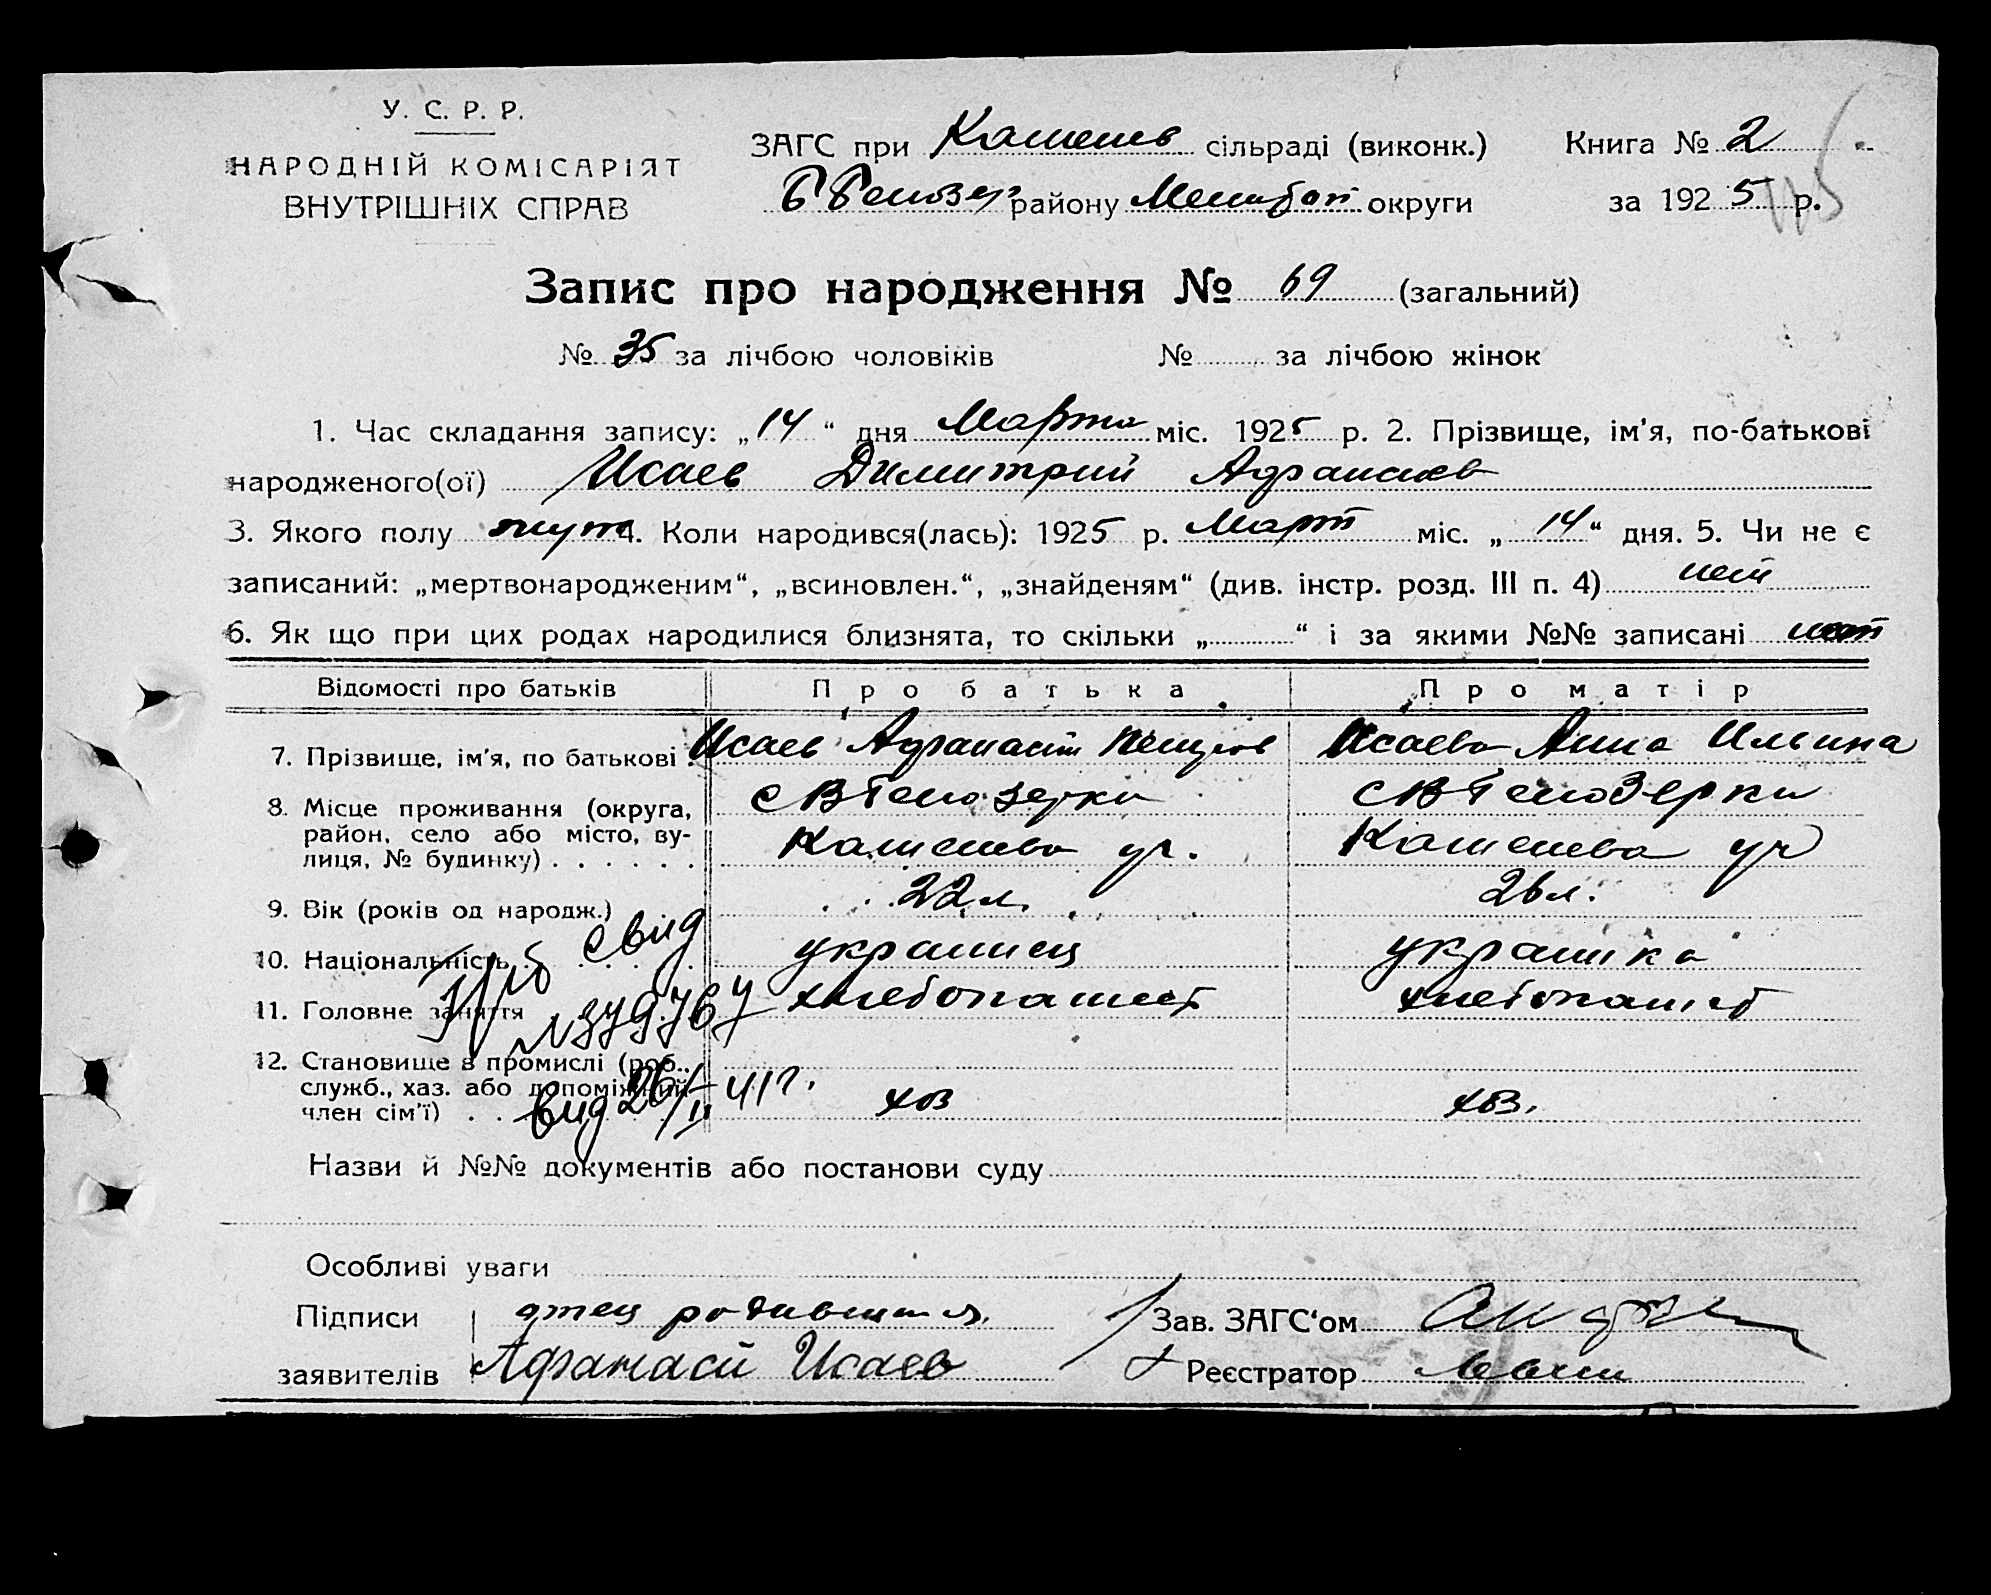 У. С. Р. Р.
НАРОДНІЙ КОМІСАРІЯТ
ВНУТРІШНІХ СПРАВ
ЗАГС при сільраді (виконк.)
району округи
Книга № 2
за 1925 р.
Запис про народження № 69 (загальний)
№ 35 за лічбою чоловіків № за лічбою жінок
1. Час складання запису: „14“ дня Марта міс. 1925 р. 2. Прізвище, ім'я, по-батькові
народженого(ої) Исаев Димитрий Афанасьев
3. Якого полу муж 4. Коли народився(лась): 1925 р. Март міс. „14“ дня. 5. Чи не є
записаний: „мертвонародженим“, „всиновлен.“, „знайденям“ (див. інстр. розд. III п. 4) нет
6. Як що при цих родах народилися близнята, то скільки „ “ і за якими №№ записані нет
Відомості про батьків Про батька Про матір
7. Прізвище, ім'я, по батькові . Исаев Афанасий Исаева Анна Ильина
8. Місце проживання (округа,
район, село або місто, ву-
лиця, № будинку) . . . . . .
9. Вік (років од народж.) 22 л. 26 л.
10. Національність украинец украинка
свид
11. Головне заняття хлебопашест хлебопашест
№ 379767
12. Становище в промислі (роб.,
служб., хаз. або допоміжний
член сім'ї) . . хоз хоз.
вид 26/II 41 г.
Назви й №№ документів або постанови суду
Особливі уваги
Підписи отец родившигося Зав. ЗАГС'ом
заявителів Афанасий Исаев Реєстратор